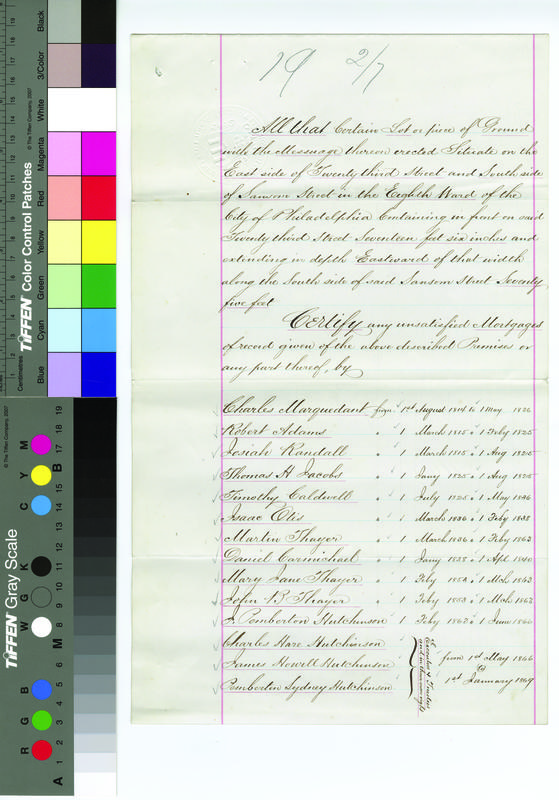 19 2/7
6
All that Certain Lot or piece of Ground
with the Messuage thereon erected Situate on the
East side of Twenty third Street and South side
of Sansom Street in the Eighth Ward of the
City of Philadelphia Containing in front on said
Twenty third Street Seventeen feet six inches and
extending in depth Eastward of that width
along the South side of said Sansom Street Seventy
five feet
Certify any unsatisfied Mortgages
of record given of the above described Premises or
any part thereof, by
Charles Marquedant from 1st August 1814 to 1 May 1826
Robert Adams " " 1 March 1815 " 1 Feby 1825
Josiah Randall " " 1 March 1815 " 1 Aug 1825
Thomas H Jacobs " " 1 Jany 1825 " 1 Aug 1825
Timothy Caldwell " " 1 July 1825 " 1 May 1846
Isaac Otis " " 1 March 1836 " 1 Feby 1838
Martin Thayer " " 1 March 1836 " 1 Feby 1863
Daniel Carmichael " " 1 Jany 1838 " 1 Apl 1840
Mary Jane Thayer " " 1 Feby 1854 " 1 Mch 1863
John B Thayer " " 1 Feby 1853 " 1 Mch 1863
J Pemberton Hutchinson " " 1 Feby 1863 " 1 June 1866
Charles Hare Hutchinson
James Howell Hutchinson
Pemberton Sydney Hutchinson
Executors & Trustees
and in their own right
from 1st May 1866
to
1st January 1869
TIFFEN Color Control Patches
© The Tiffen Company, 2007
Centimetres
Blue Cyan Green Yellow Red Magenta White 3/Color Black
TIFFEN Gray Scale
© The Tiffen Company, 2007
R G B W G K C Y M
A 1 2 3 4 5 6 M 8 9 10 11 12 13 14 15 B 17 18 19